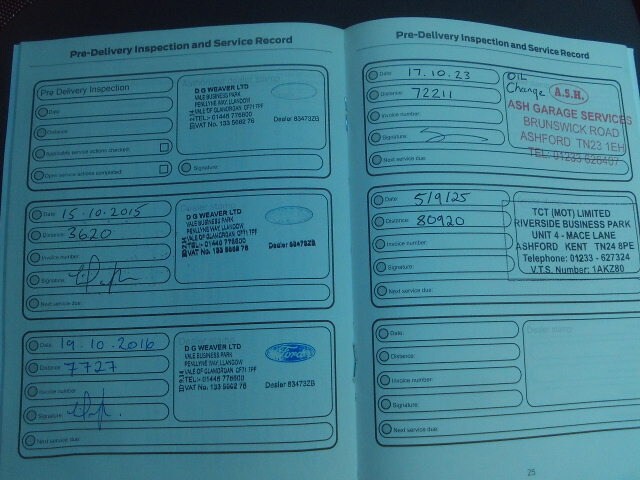 Pre-Delivery Inspection and Service Record
Pre Delivery Inspection
Date
Distance
Redeemable service actions checked
Open service actions completed
D G WEAVER LTD
VALE BUSINESS PARK
PENLLYNE WAY, LLANGOW
VALE OF GLAMORGAN CF71 7PF
TEL:- 01446 776600
VAT No. 133 5562 76
Dealer 63473ZB
Signature
Date
15.10.2015
Distance
3620
Invoice number
Signature
Next service due
D G WEAVER LTD
VALE BUSINESS PARK
PENLLYNE WAY, LLANGOW
VALE OF GLAMORGAN CF71 7PF
TEL:- 01446 776600
VAT No. 133 5562 76
Dealer 63473ZB
Date
19.10.2016
Distance
7727
Invoice number
Signature
Next service due
D G WEAVER LTD
VALE BUSINESS PARK
PENLLYNE WAY, LLANGOW
VALE OF GLAMORGAN CF71 7PF
TEL:- 01446 776600
VAT No. 133 5562 76
Ford
Dealer 63473ZB
Pre-Delivery Inspection and Service Record
Date
17.10.23
Distance
72211
Invoice number
Signature
Next service due
OIL
Change
A.S.H.
ASH GARAGE SERVICES
BRUNSWICK ROAD
ASHFORD TN23 1EH
TEL: 01233 626467
Date
5/9/25
Distance
80920
Invoice number
Signature
Next service due:
TCT (MOT) LIMITED
RIVERSIDE BUSINESS PARK
UNIT 4 - MACE LANE
ASHFORD KENT TN24 8PE
Telephone: 01233 - 627324
V.T.S. Number: 1AKZ80
Date:
Distance:
Invoice number:
Signature:
Next service due:
Dealer stamp
25